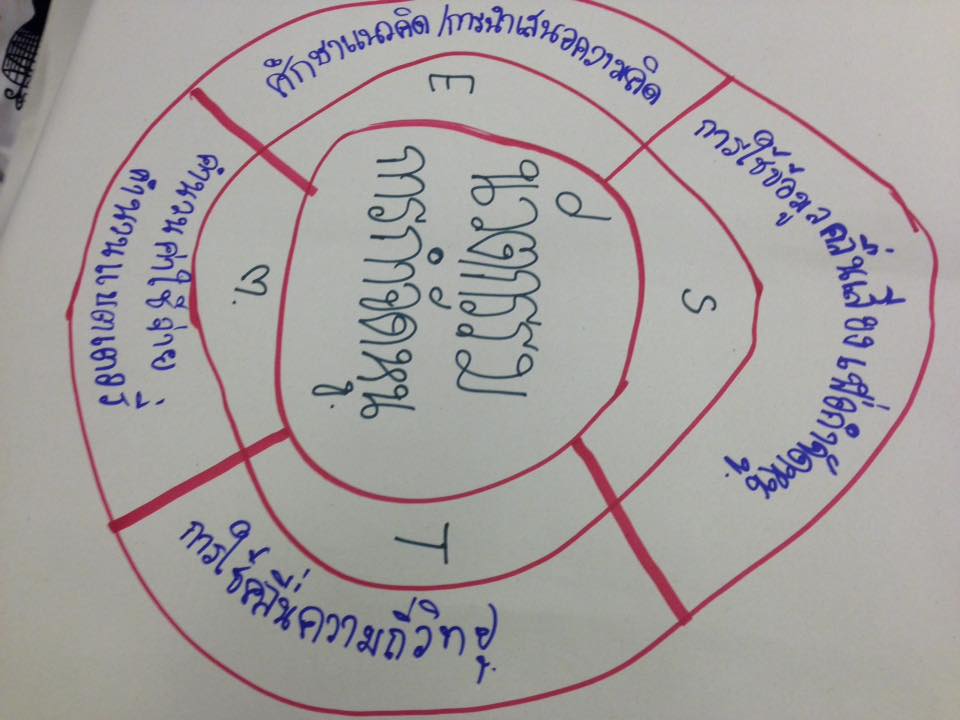 การใช้ข้อมูลคลื่นเสียงเพื่อกำจัดหนู
S
ศึกษาแนวคิด/การนำเสนอความคิด
E
นวัตกรรม
การกำจัดหนู
T
การใช้คลื่นความถี่วิทยุ
m.
คำนวนค่าใช้จ่าย
คำนวนแบตเตอรี่